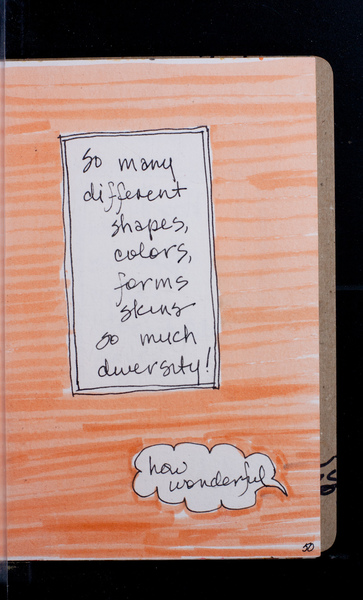 So many
different
shapes,
colors,
forms
skins
so much
diversity!
how
wonderful
50